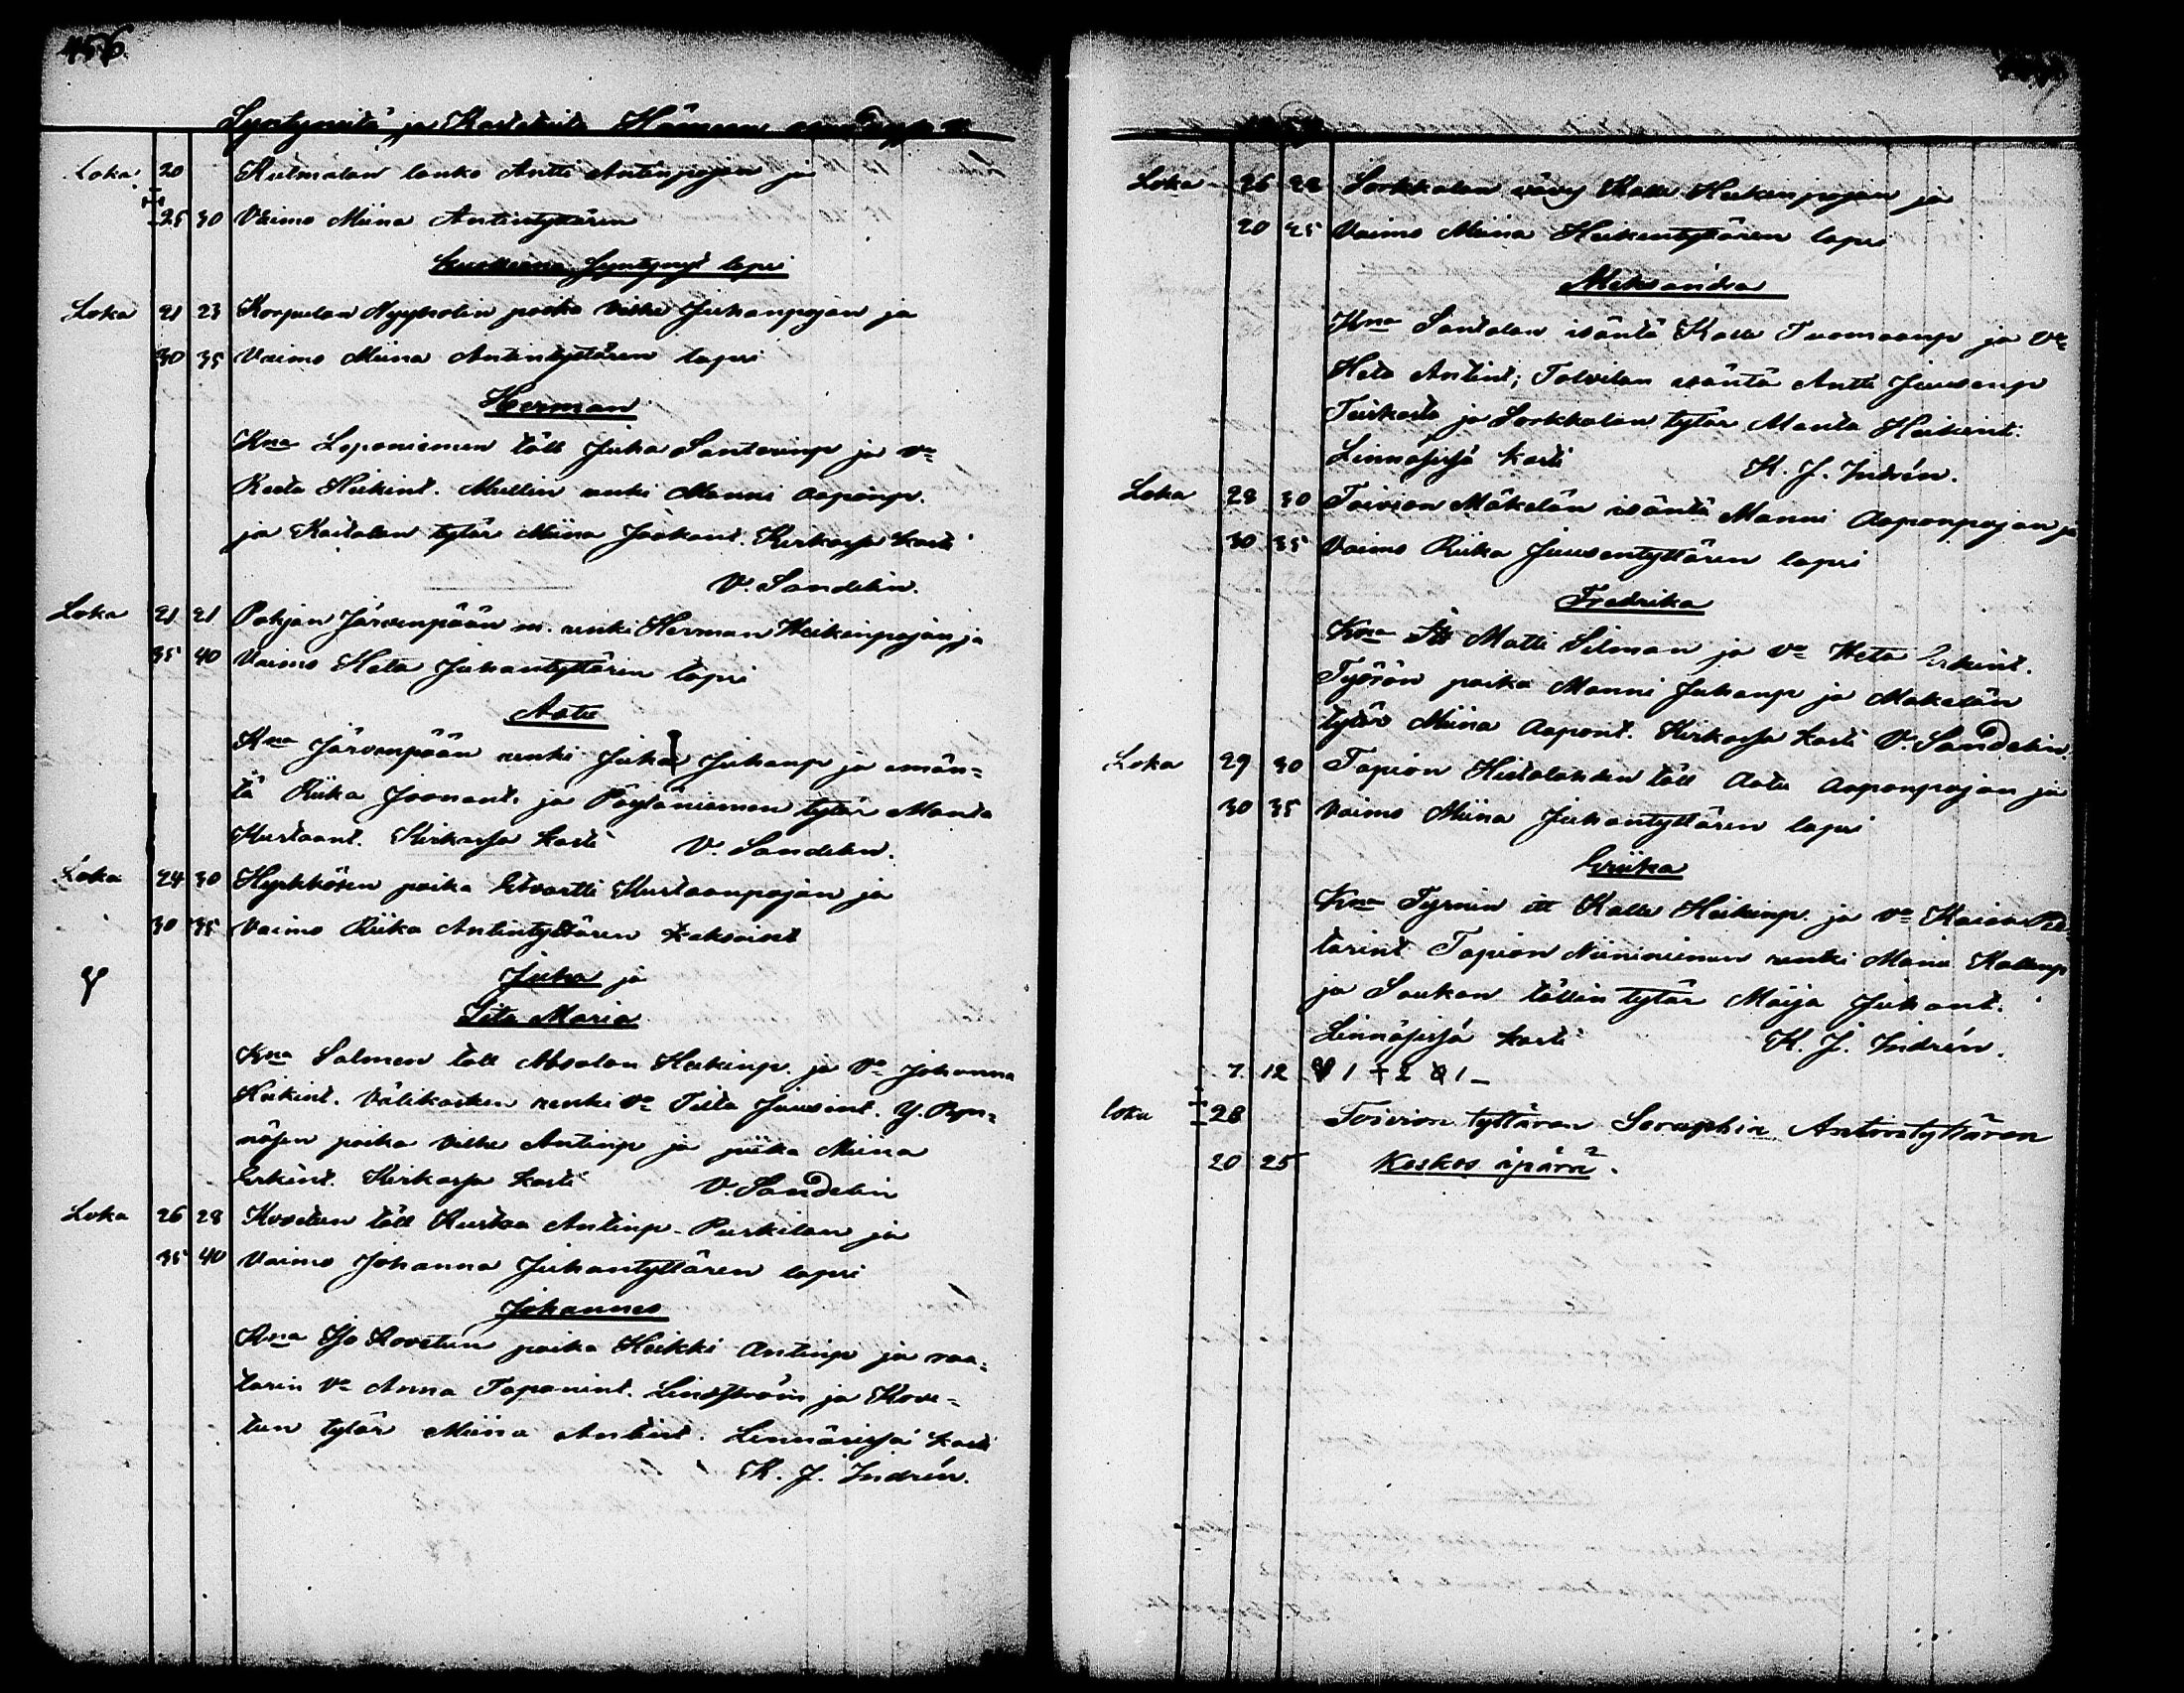 456
Syntyneitä ja Kastetuita Hämeen
Loka 20 Kulmalan lanko Antti Antinpojan ja
25 30 Vaimo Miina Antintyttären
Kuolleena Syntynyt lapsi
Loka 21 23 Korpulan Nyyholin poika Vilhe Juhanpojan ja
30 35 Vaimo Miina Antintyttären lapsi
Herman
Kna Loponiemen täll Juha Santerinp ja va
Reeta Heikint. Mullin renki Manni Aaponp.
ja Kaitalan tytär Miina Jaakont. Kirkossa kasti
V. Sandelin.
Loka 21 21 Pohjan Järvenpään m. renki Herman Heikinpojan ja
35 40 Vaimo Heta Juhantyttären lapsi
Aatu
Kna Järvenpään renki Juha Juhanp ja emän=
tä Riika Joonant. ja Pöytäniemen tytär Manta
Kustaant. Kirkossa kasti V. Sandelin.
Loka 24 30 Hyrkkösen poika Edvartti Kustaanpojan ja
30 35 Vaimo Riika Antintyttären kaksoiset
Juha ja
Tita Maria
Kna Salmen täll Absalon Heikinp. ja Va Johanna
Heikint. Välikosken renki va Tilta Juusint. Y.
näsen poika Vilhe Antinp ja piika Miina
Erkint. Kirkossa kasti V. Sandelin
Loka 26 28 Kovetun täll Kustaa Antinp. Purkilan ja
35 40 Vaimo Johanna Juhantyttären lapsi
Johannes
Kna Iso Kovetun poika Heikki Antinp ja raa=
tarin Va Anna Tapanint. Lindström ja Kove=
tun tytär Miina Antint. Linnäisissä kasti
K. J. Indrén.
Loka 26 28 Sorkkalan vävy Kalle Heikinpojan ja
20 25 Vaimo Miina Heikintyttären lapsi
Aleksandra
Kna Santalan isäntä Kalle Tuomaanp ja Va
Heta Antint; Talvelan isäntä Antti Juusenp
ja Sorkkalan tytär Manta Heikint.
Linnäsissä kasti K. J. Indrén.
Loka 28 30 Toivion Mäkelän isäntä Manni Aaponpojan ja
30 35 Vaimo Riika Juusentyttären lapsi
Fredrika
Kna Itt Matti Silman ja va Heta Erkint.
Työrön poika Manni Juhanp ja Mäkelän
tytär Miina Aapont. Kirkossa kasti V. Sandelin.
Loka 29 30 Tapion Hietalahden täll Aatu Aaponpojan ja
30 35 Vaimo Miina Juhantyttären lapsi
Eriika
Kna Tyrnin itt Kalle Heikinp. ja va Kaisa Pe=
tarint Tapion Niininiemen renki Manu Kallenp
ja Saukon tällin tytär Maija Juhant.
Linnäsissä kasti K. J. Indrén.
7 12 1 + 2 1 _
loka 28 Toivion tyttären Seraphia Antintyttären
20 25 Keskos äpärä.